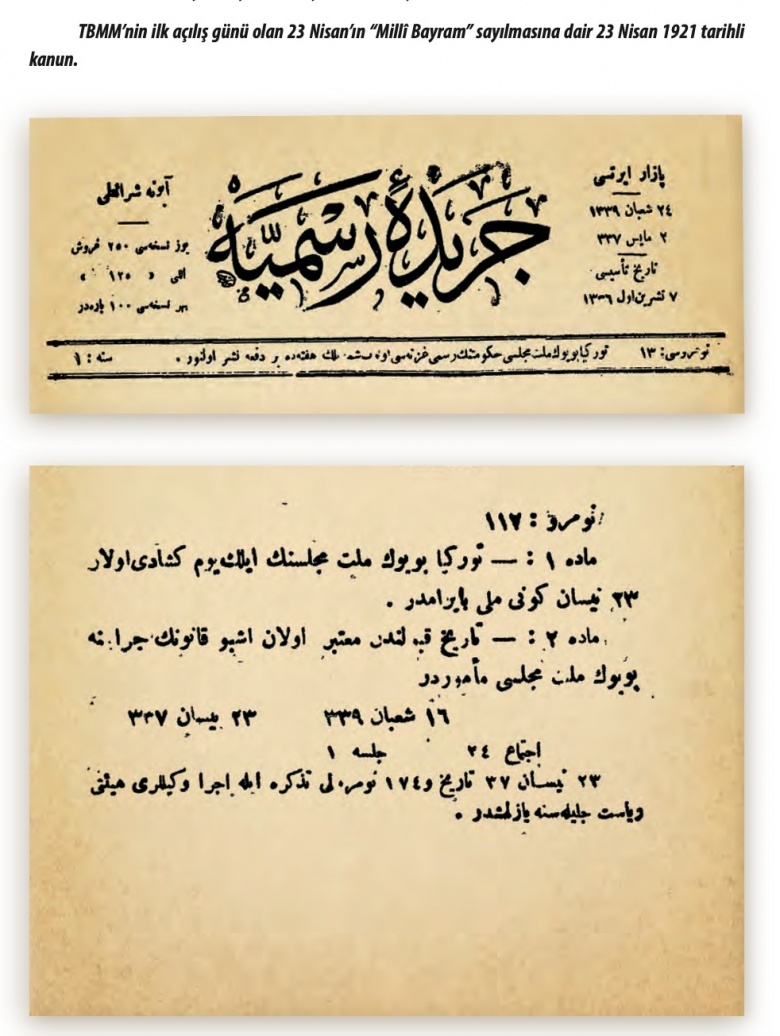 TBMM’nin ilk açılış günü olan 23 Nisan’ın “Millî Bayram” sayılmasına dair 23 Nisan 1921 tarihli
kanun.
پازار ايرتسى
٢٤ شعبان ١٣٣٩
٢ مايس ٣٣٧
تاريخ تأسيسى
٧ تشرين اول ١٣٣٦
جريدۀ رسميه
آبونه شرائطى
يوز نسخه‌سى ٢٥٠ غروش
اللى » ١٢٥ »
بهر نسخه‌سى ١٠٠ پاره‌در
نوميروسى: ١٣ توركيا بويوك ملت مجلسى حكومتنك رسمى غزته‌سى اولوب هفته‌ده بر دفعه نشر اولنور . سنه : ١
نومرو : ١١٧
ماده ١ : — توركيا بويوك ملت مجلسنك ايلك يوم كشادى اولان
٢٣ نيسان كونى ملى بايرامدر .
ماده ٢ : — تاريخ قبولندن معتبر اولان اشبو قانونك اجراسنه
بويوك ملت مجلسى مأموردر
١٦ شعبان ٣٣٩ ٢٣ نيسان ٣٣٧
اجتماع ٢٤ جلسه ١
٢٣ نيسان ٣٧ تاريخ و ١٧٤ نومرولى تذكره ايله اجرا وكيللرى هيئتى
رياست جليله‌سنه يازلمشدر .